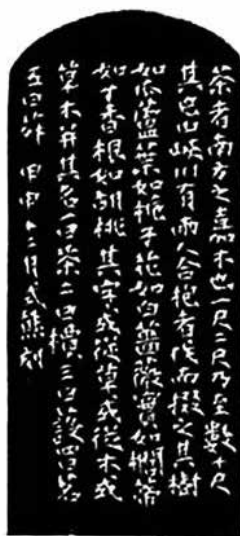 茶者南方之嘉木也一尺二尺乃至數十尺
其巴山峽川有兩人合抱者伐而掇之其樹
如瓜蘆葉如梔子花如白薔薇實如櫚蒂
如丁香根如胡桃其字或從草或從木或
草木并其名一曰茶二曰檟三曰蔎四曰茗
五曰荈 甲申十二月式熊刻